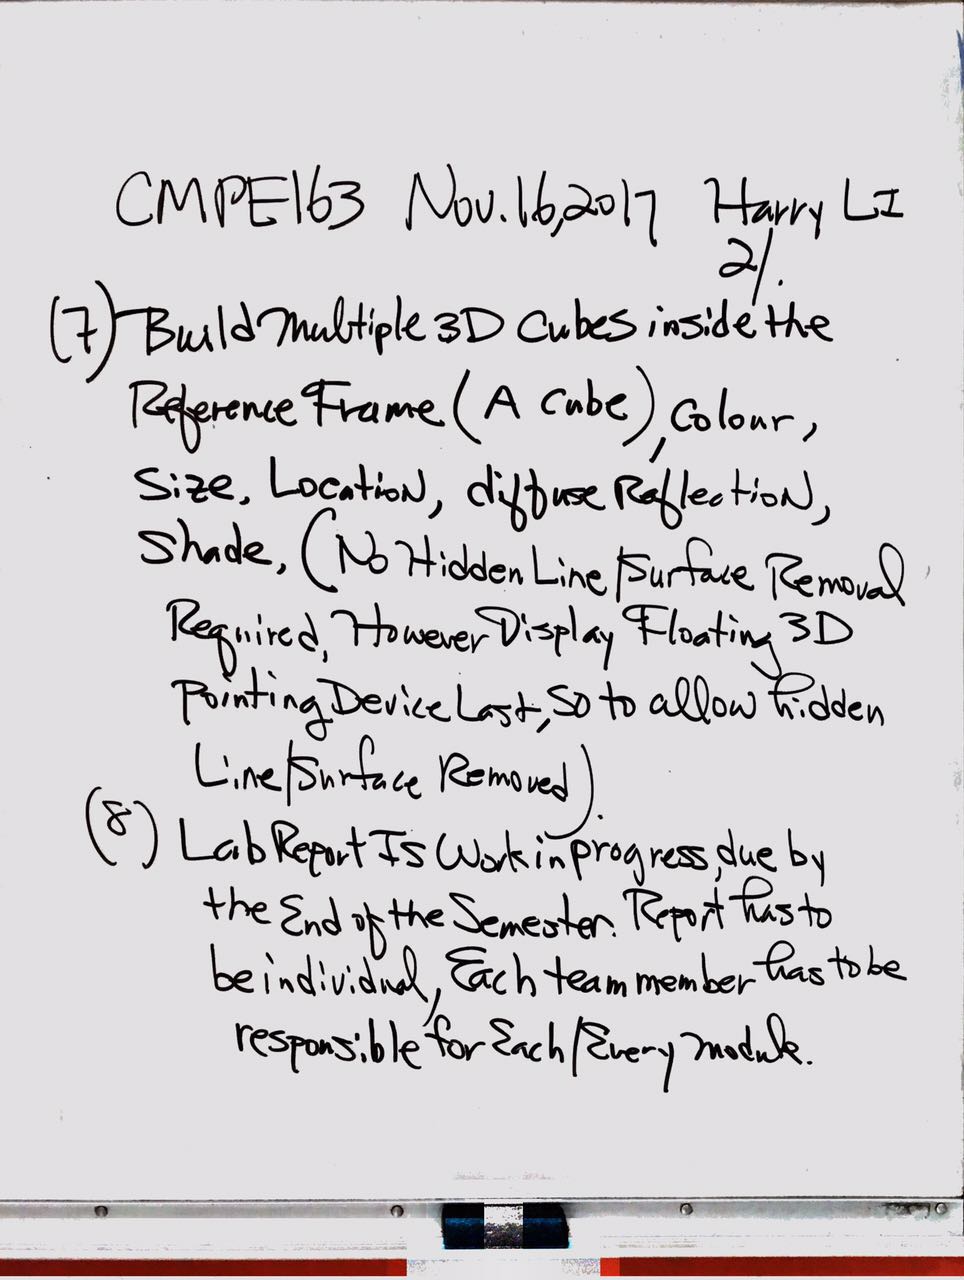 CMPE163 Nov.16,2017 Harry LI
2/.
(7) Build Multiple 3D Cubes inside the
Reference Frame (A Cube), Colour,
Size, Location, diffuse Reflection,
Shade, (No Hidden Line/Surface Removal
Required, However Display Floating 3D
Pointing Device Last, So to allow hidden
Line/Surface Removed).
(8) Lab Report Is Work in progress, due by
the End of the Semester. Report has to
be individual, Each team member has to be
responsible for Each/Every module.